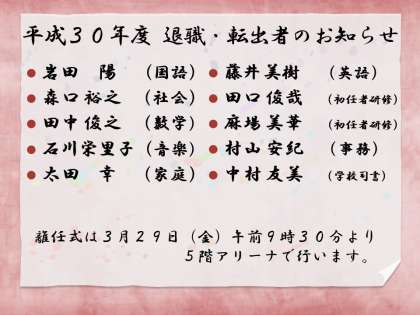 平成30年度 退職・転出者のお知らせ
●岩田 陽 (国語) ●藤井美樹 (英語)
●森口裕之 (社会) ●田口俊哉 (初任者研修)
●田中俊之 (数学) ●麻場美華 (初任者研修)
●石川栄里子 (音楽) ●村山安紀 (事務)
●太田 幸 (家庭) ●中村友美 (学校司書)
離任式は3月29日(金)午前9時30分より
5階アリーナで行います。